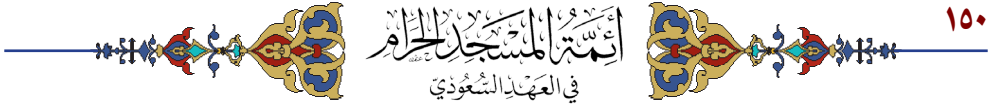 ١٥٠
أَئِمَّةُ المَسْجِدِ الحَرَامِ
في العَهْدِ السُّعُوْدِيّ